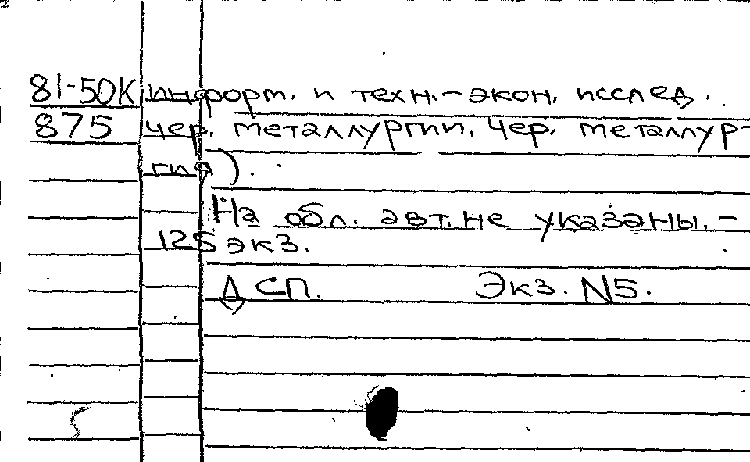 81-50К информ. и техн.-экон. исслед.
875 чер. металлургии, Чер. металлур-
гия).
На обл. авт. не указаны. -
125 экз.
ДСП. Экз. N5.
5